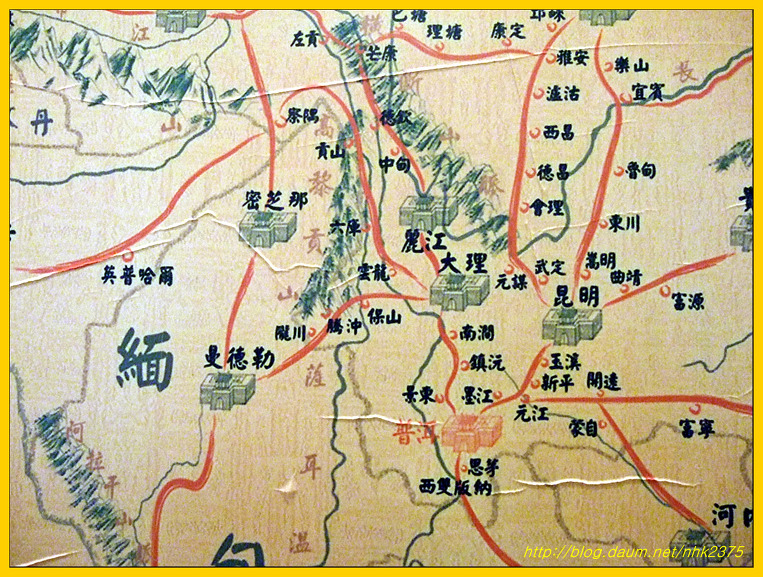 江
左貢
巴塘
理塘
康定
芒康
橫
斷
山
脈
雅安
樂山
長
瀘沽
宜賓
丹
山
察隅
高
黎
貢
山
德欽
貢山
中甸
西昌
德昌
魯甸
會理
密芝那
麗江
六庫
東川
英普哈爾
雲龍
大理
元謀
武定
嵩明
曲靖
昆明
富源
隴川
騰沖
保山
南澗
緬
曼德勒
薩
鎮沅
玉溪
新平
開遠
景東
墨江
元江
普洱
蒙自
富寧
阿
拉
干
山
脈
耳
溫
思茅
西雙版納
河內
甸
http://blog.daum.net/nhk2375